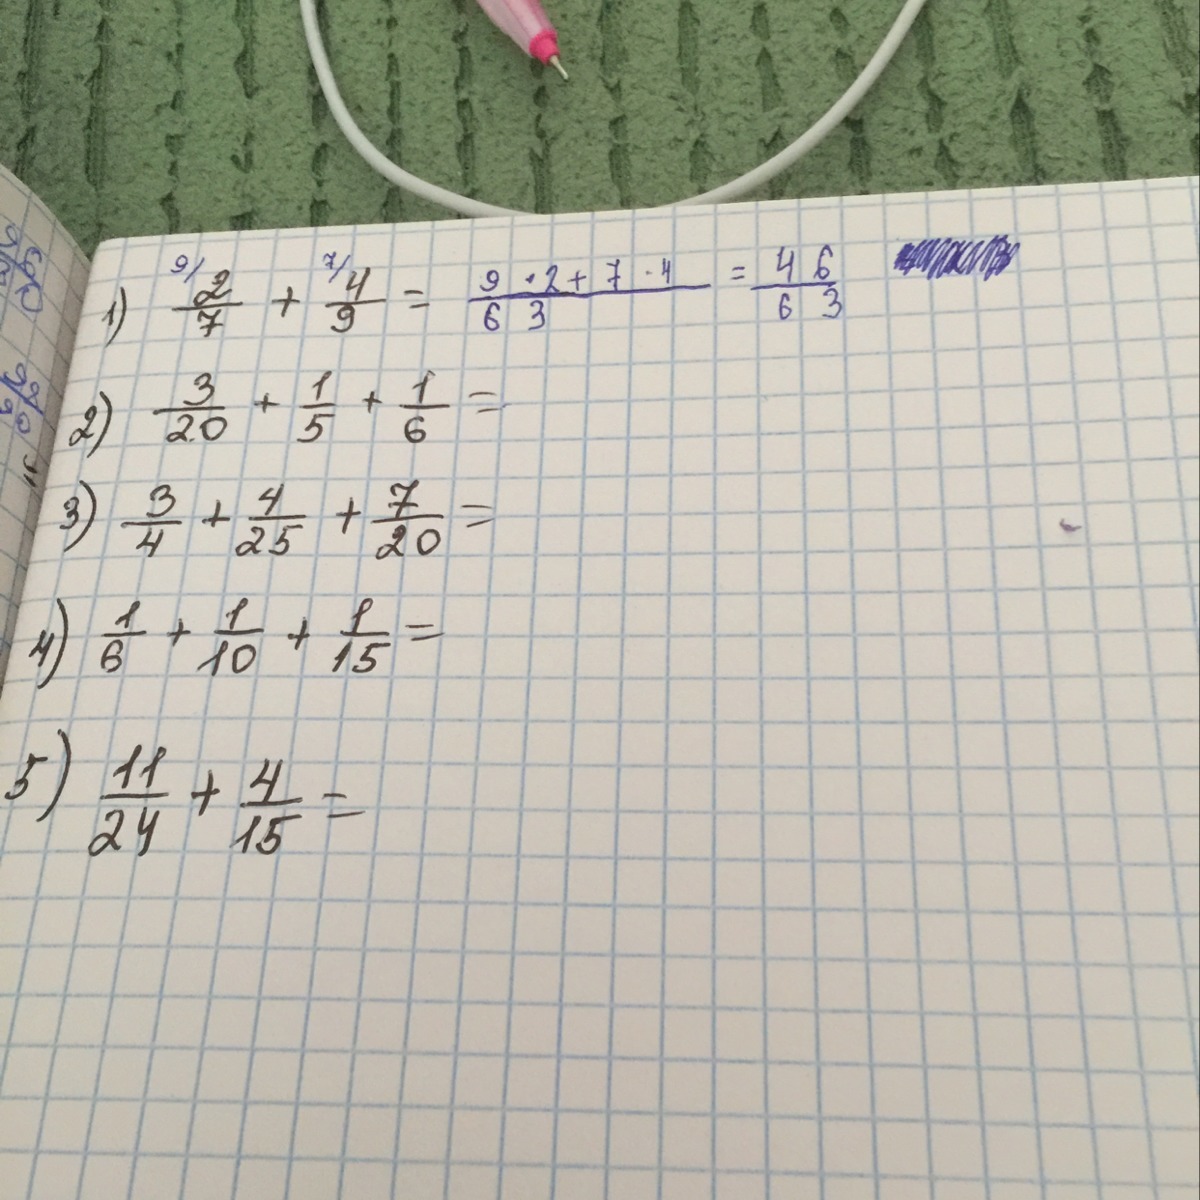 1) 9/ 2/7 + 7/ 4/9 = 9·2+7·4/63 = 46/63
2) 3/20 + 1/5 + 1/6 =
3) 3/4 + 4/25 + 7/20 =
4) 1/6 + 1/10 + 1/15 =
5) 11/24 + 4/15 =